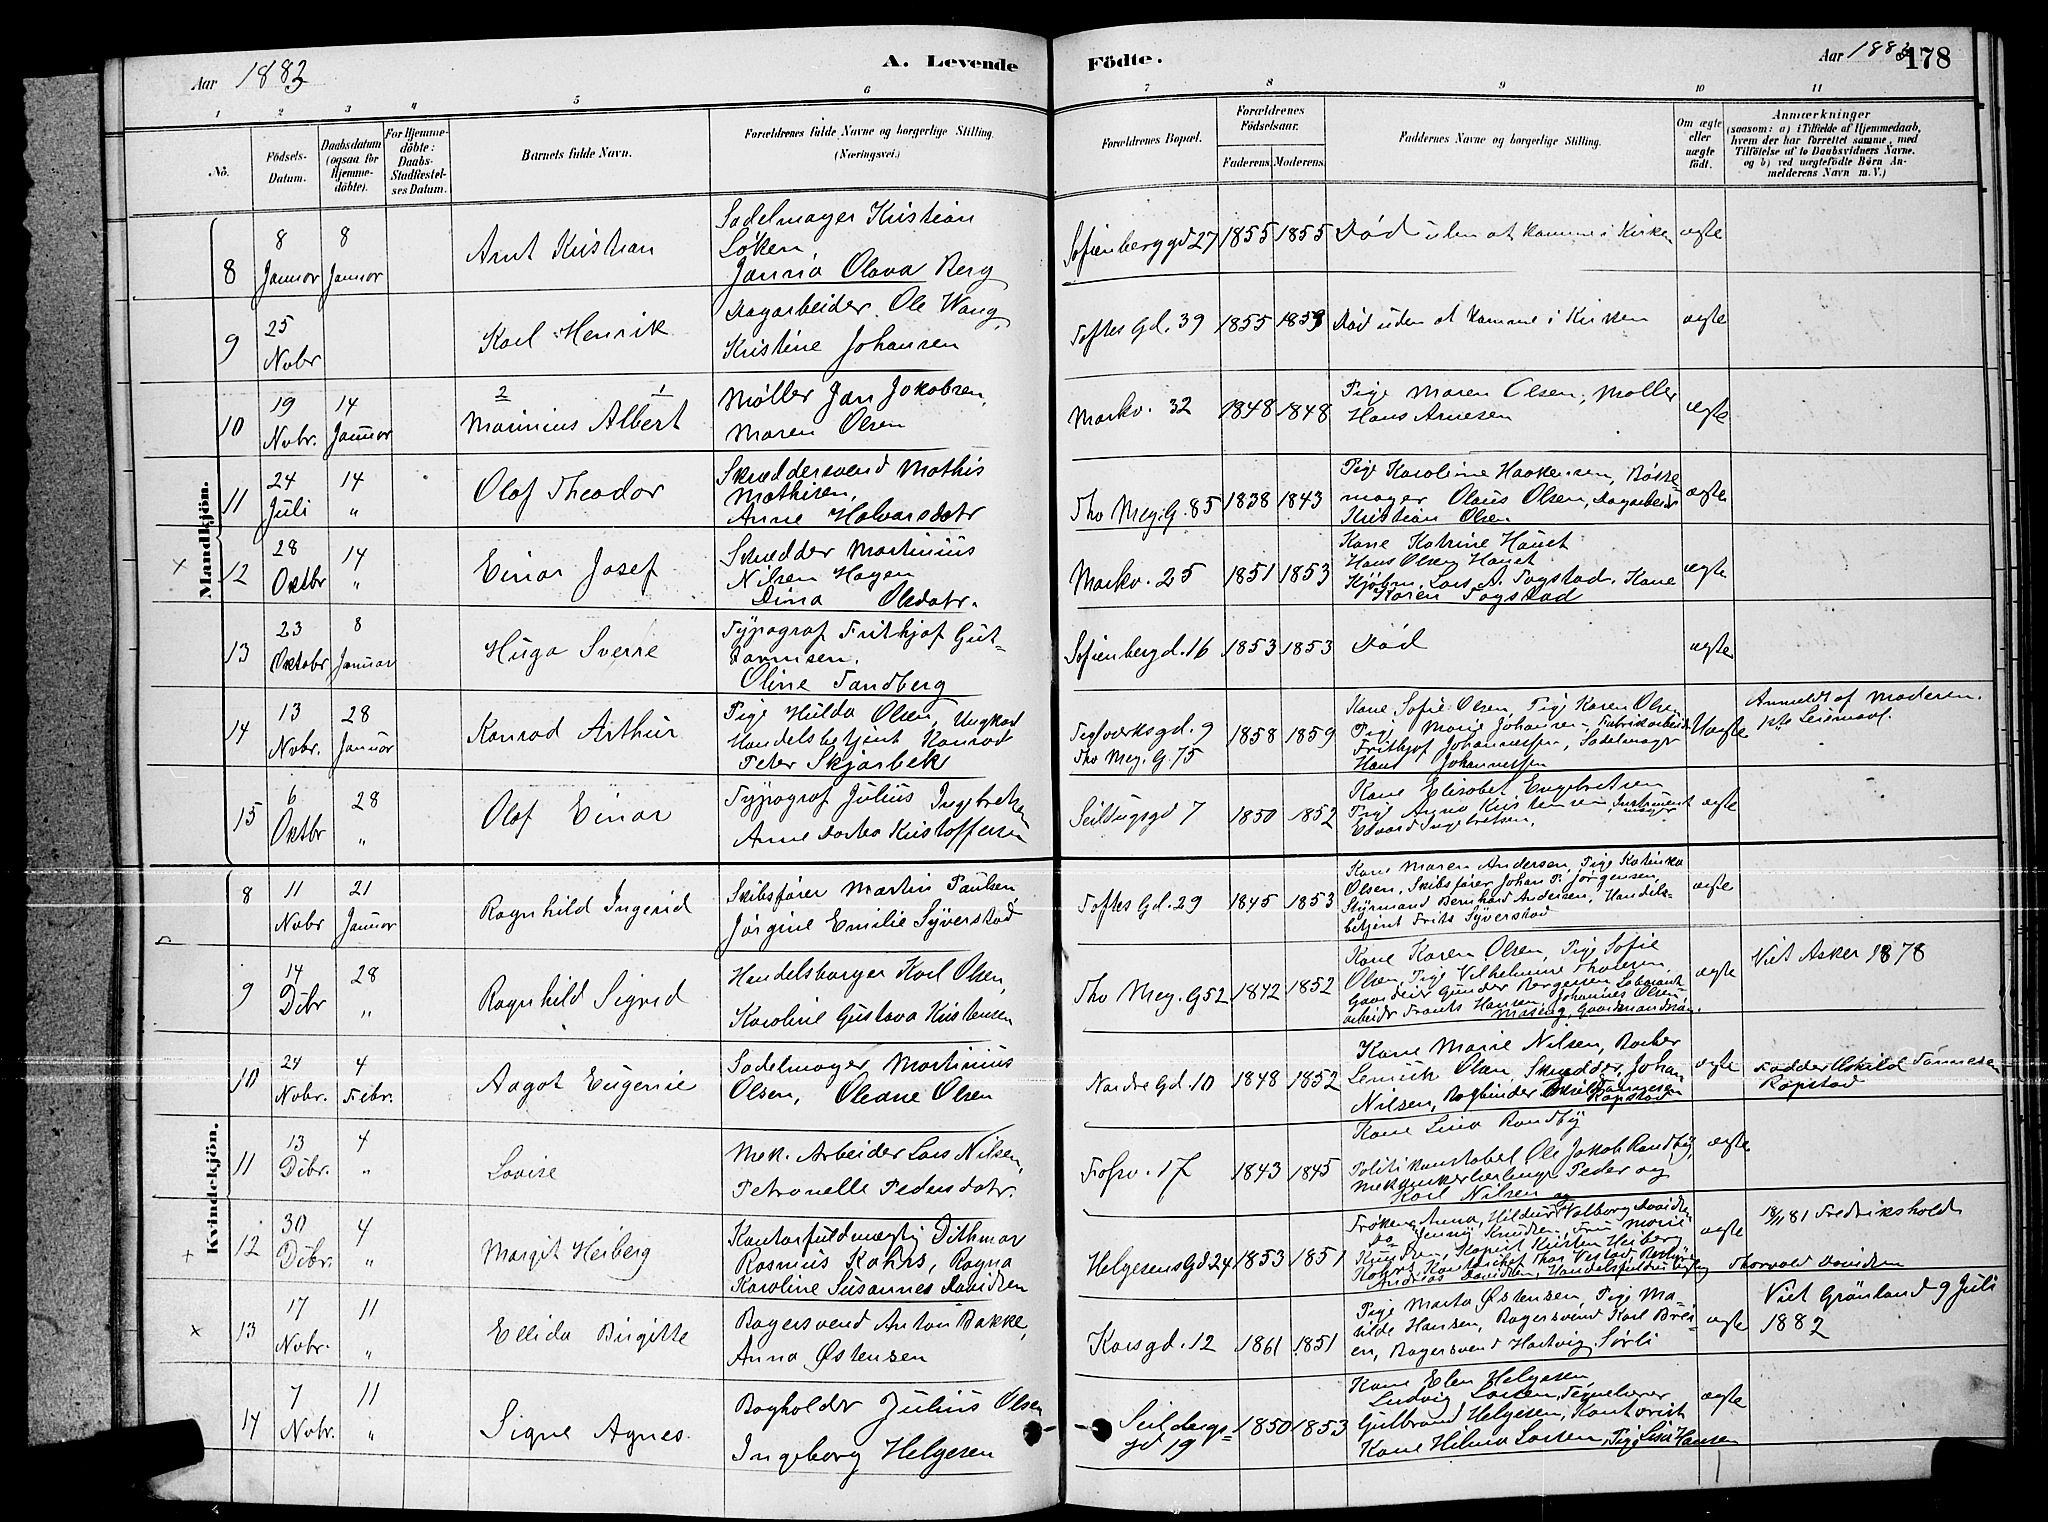 Aar 1883
A. Levende Födte.
Aar 1883 178
1 2 3 4 5 6 7 8 9 10 11
No.
Födsels-Datum.
Daabsdatum (ogsaa for Hjemme-döbte).
For Hjemme-döbte: Daabs-Stadfæstel-ses Datum.
Barnets fulde Navn.
Forældrenes fulde Navne og borgerlige Stilling. (Næringsvei.)
Forældrenes Bopæl.
Forældrenes Födselsaar.
Faderens. Moderens.
Faddernes Navne og borgerlige Stilling.
Om ægte eller uægte födt.
Anmærkninger (saasom: a) i Tilfælde af Hjemmedaab, hvem der har forrettet samme, med Tilföielse af to Daabsvidners Navne. og b) ved uægtefödte Börn An-melderens Navn m. V.)
Mandkjön.
8 8 Januar 8 Januar Arnt Kristian Sadelmager Kristian
Løken
Janna Olava Berg Sofienberggd 27 1855 1855 Død uden at komme i Kirken ægte
9 25 Nobr Karl Henrik Dagarbeider Ole Wang,
Kristine Johansen Toftes Gd. 39 1855 1859 Død uden at komme i Kirken ægte
10 19 Nobr. 14 Januar 2 1
Marinius Albert Møller Jan Jakobsen,
Maren Olsen Markv. 32 1848 1848 Pige Maren Olsen, Møller
Hans Arnesen ægte
11 24 Juli 14 " Olaf Theodor Skræddersvend Mathis
Mathisen,
Anne Halvarsdatr Thv Mey. G. 85 1838 1843 Pige Karoline Haakensen, Børste-
mager Olaus Olsen, Dagarbeidr
Kristian Olsen ægte
12 28 Oktbr 14 " Einar Josef Skrædder Martinius
Nilsen Hagen
Dina Olsdatr. Markv. 25 1851 1853 Kone Katrine Hauet
Hans Olsen Hauet
Kjøbm. Lars A. Fogstad, Kone
Karen Fogstad ægte
13 23 Oktobr 8 Januar Hugo Sverre Typograf Frithjof Gut-
tormsen.
Oline Tandberg Sofienbergd. 16 1853 1853 Død ægte
14 13 Nobr. 28 Januar Konrad Arthur Pige Hulda Olsen, Ungkarl
Handelsbetjent Konrad
Peter Skjærbek Teglverksgd. 9
Thv Mey. G. 75 1858 1859 Kone Sofie Olsen, Pige Karen Olsen
Pige Marie Johansen, Fabrikarbeidr
Frithjof Johannessen, Sadelmager
Hans Johannessen Uægte Anmeldt af Moderen.
1ste Leiermaal.
15 6 Oktbr 28 " Olaf Einar Typograf Julius Ingebretsen
Anne Dorthea Kristoffersen Seildugsgd 7 1850 1852 Kone Elisabet Engebretsen
Pige Agna Kristensen, Instrument
mager
Edvard Ingebretsen. ægte
Kvindekjön.
8 11 Nobr 21 Januar Ragnhild Ingerid Skibsfører Martin Paulsen
Jørgine Emilie Syverstad Toftes Gd. 29 1845 1853 Kone Maren Andersen, Pige Katinka
Olsen, Skibsfører Johan P. Jørgensen,
Styrmand Bernhard Andersen, Handels-
betjent Frits Syverstad ægte
9 14 Dibr 28 " Ragnhild Sigrid Handelsborger Karl Olsen,
Karoline Gustava Kristensen Thv Mey. G 52 1842 1852 Kone Karen Olsen, Pige Sofie
Olsen, Pige Vilhelmine
Gunder Børgesen,
arbeidr Frants Hansen, Johannes Olsen
ægte Viet Asker 1878
10 24 Nobr. 4 Febr. Aagot Eugenie Sadelmager Martinius
Olsen, Oleane Olsen Nordre Gd. 10 1848 1852 Kone Marie Nilsen, Bager
Lenrick Olsen, Skrædder Johan
Nilsen, Bogbinder Eskild Tønnesen
Ropstad ægte Fadder Eskild Tønnesen
Ropstad
11 13 Dibr. 4 " Lovise Mek. Arbeider Lars Nilsen,
Petronelle Pedersdatr. Fossv. 17 1843 1845 Kone Lina Randby
Politikonstabel Ole Jakob Randby,
Peder og
Karl Nilsen ægte
12 30 Dibr. 4 " Margit Heiberg Kontorfuldmægtig Dithmar
Rasmus Kahrs, Ragna
Karoline Susannes Davidsen Helgesens Gd 24 1853 1851 Frøken Anna, Hildur og Valborg Davidsen
Do Jenny Knudsen, Fru Marie
Knudsen, Kapit Kristen Heiberg
Kahrs,
Andreas Davidsen, Handelsfuldmægtig ægte 18/11 81 Fredrikshold
Thorvald Davidsen
13 17 Nobr. 11 " Ellida Birgitte Bagersvend Anton Bakke,
Anna Østensen Korsgd. 12 1861 1851 Pige Marta Østensen, Pige Ma-
tilde Hansen, Bagersvend Karl Brei-
en, Bagersvend Hartvig Sørli ægte Viet Grønland 9 Juli
1882
14 7 Nobr. 11 " Signe Agnes. Bogholder Julius Olsen
Ingeborg Helgesen Seildugs-
gd 19 1850 1853 Kone Elen Helgesen
Ludvig Larsen, Tegnelærer
Gulbrand Helgesen, Kontorist
Kone Hilma Larsen, Pige Lisa Hansen ægte